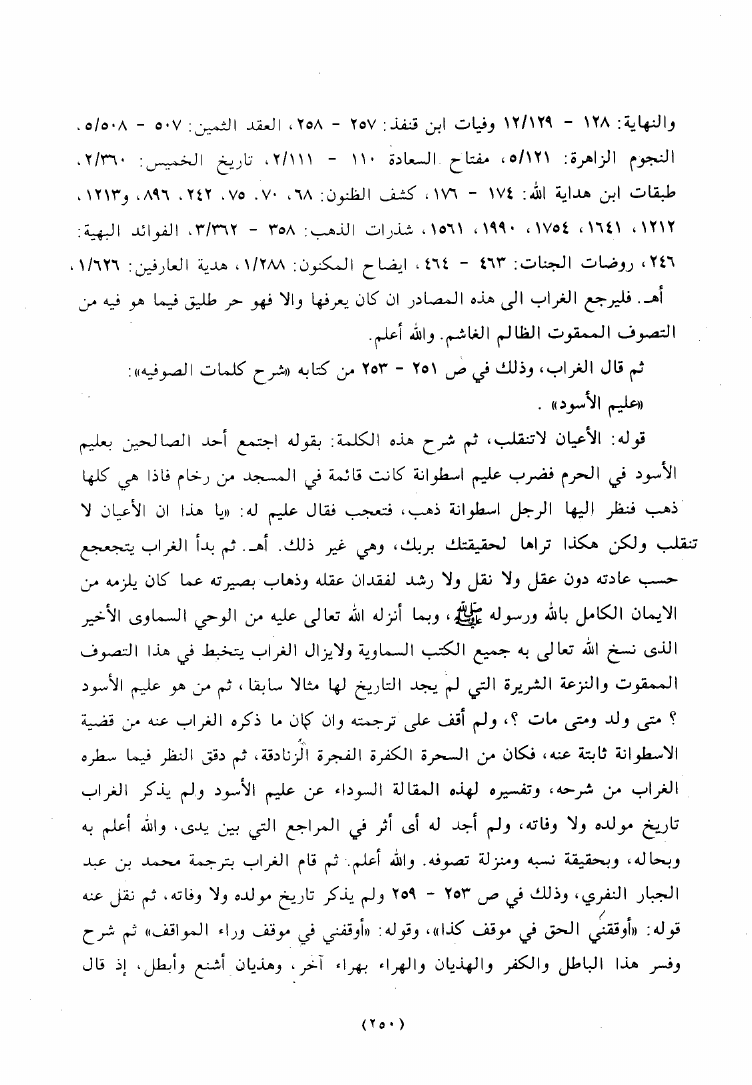 والنهاية: ١٢٨ – ١٢/١٢٩ وفيات ابن قنفذ: ٢٥٧ – ٢٥٨، العقد الثمين: ٥٠٧ – ٥/٥٠٨،
النجوم الزاهرة: ٥/١٢١، مفتاح السعادة ١١٠ – ٢/١١١، تاريخ الخميس: ٢/٣٦٠،
طبقات ابن هداية الله: ١٧٤ – ١٧٦، كشف الظنون: ٦٨، ٧٠، ٧٥، ٢٤٢، ٨٩٦، و١٢١٣،
١٢١٢، ١٦٤١، ١٧٥٤، ١٩٩٠، ١٥٦١، شذرات الذهب: ٣٥٨ – ٣/٣٦٢، الفوائد البهية:
٢٤٦، روضات الجنات: ٤٦٣ – ٤٦٤، ايضاح المكنون: ١/٢٨٨، هدية العارفين: ١/٦٢٦،
أهـ. فليرجع الغراب الى هذه المصادر ان كان يعرفها والا فهو حر طليق فيما هو فيه من
التصوف الممقوت الظالم الغاشم. والله أعلم.
ثم قال الغراب، وذلك في ص ٢٥١ – ٢٥٣ من كتابه «شرح كلمات الصوفيه»:
«عليم الأسود» .
قوله: الأعيان لاتنقلب، ثم شرح هذه الكلمة: بقوله اجتمع أحد الصالحين بعليم
الأسود في الحرم فضرب عليم اسطوانة كانت قائمة في المسجد من رخام فاذا هي كلها
ذهب فنظر اليها الرجل اسطوانة ذهب، فتعجب فقال عليم له: «يا هذا ان الأعيان لا
تنقلب ولكن هكذا تراها لحقيقتك بربك، وهي غير ذلك. أهـ. ثم بدأ الغراب يتجعجع
حسب عادته دون عقل ولا نقل ولا رشد لفقدان عقله وذهاب بصيرته عما كان يلزمه من
الايمان الكامل بالله ورسوله ﷺ، وبما أنزله الله تعالى عليه من الوحي السماوى الأخير
الذى نسخ الله تعالى به جميع الكتب السماوية ولايزال الغراب يتخبط في هذا التصوف
الممقوت والنزعة الشريرة التي لم يجد التاريخ لها مثالا سابقا، ثم من هو عليم الأسود
؟ متى ولد ومتى مات ؟، ولم أقف على ترجمته وان كان ما ذكره الغراب عنه من قضية
الاسطوانة ثابتة عنه، فكان من السحرة الكفرة الفجرة الزنادقة، ثم دقق النظر فيما سطره
الغراب من شرحه، وتفسيره لهذه المقالة السوداء عن عليم الأسود ولم يذكر الغراب
تاريخ مولده ولا وفاته، ولم أجد له أى أثر في المراجع التي بين يدى، والله أعلم به
وبحاله، وبحقيقة نسبه ومنزلة تصوفه. والله أعلم. ثم قام الغراب بترجمة محمد بن عبد
الجبار النفري، وذلك في ص ٢٥٣ – ٢٥٩ ولم يذكر تاريخ مولده ولا وفاته، ثم نقل عنه
قوله: «أوقفني الحق في موقف كذا»، وقوله: «أوقفني في موقف وراء المواقف» ثم شرح
وفسر هذا الباطل والكفر والهذيان والهراء بهراء آخر، وهذيان أشنع وأبطل، إذ قال
(٢٥٠)